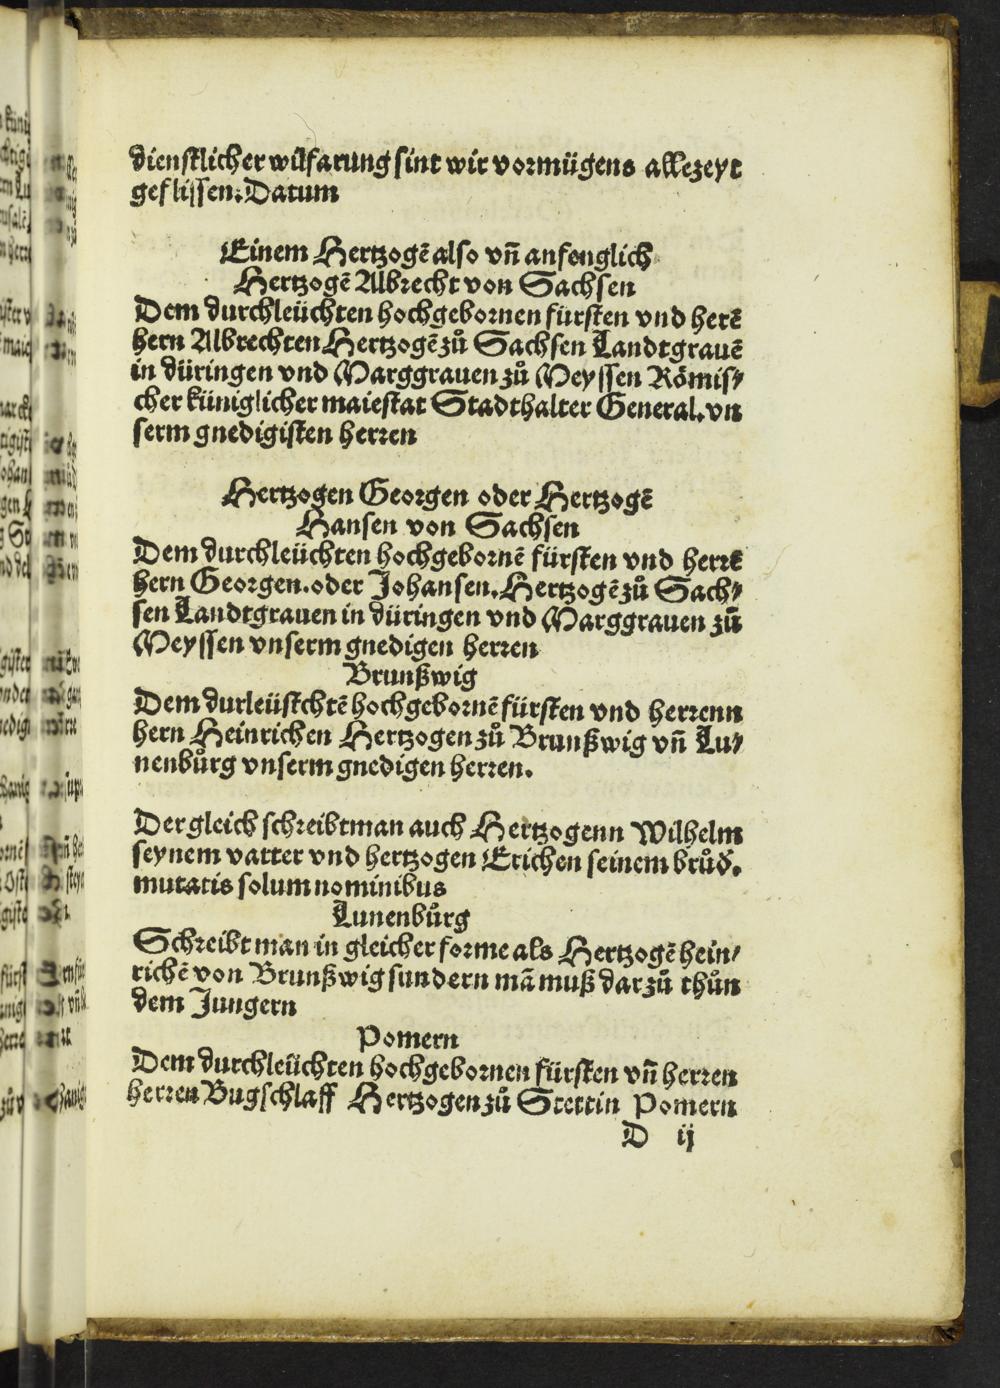 dienstlicher wilfarung sint wir vormügens allezeyt
geflissen. Datum
Einem Hertzogē also vn̄ anfenglich
Hertzogē Albrecht von Sachsen
Dem durchleüchten hochgebornen fürsten vnd herē
hern Albrechten Hertzogē zů Sachsen Landtgrauē
in düringen vnd Marggrauen zů Meyssen Römis⸗
cher küniglicher maiestat Stadthalter General. vn
serm gnedigisten herren
Hertzogen Georgen oder Hertzogē
Hansen von Sachsen
Dem durchleüchten hochgebornē fürsten vnd herrē
hern Georgen. oder Johansen. Hertzogē zů Sach⸗
sen Landtgrauen in düringen vnd Marggrauen zů
Meyssen vnserm gnedigen herren
Brunßwig
Dem durleüstchtē hochgebornē fürsten vnd herrenn
hern Heinrichen Hertzogen zů Brunßwig vn̄ Lu⸗
nenbůrg vnserm gnedigen herren.
Der gleich schreibt man auch Hertzogenn Wilhelm
seynem vatter vnd hertzogen Erichen seinem brůd̄.
mutatis solum nominibus
Lunenbůrg
Schreibt man in gleicher forme als Hertzogē hein⸗
richē von Brunßwig sundern mā muß darzů thůn
dem Jungern
Pomern
Dem durchleüchten hochgebornen fürsten vn̄ herren
herren Bugschlaff Hertzogen zů Stettin Pomern
D ij